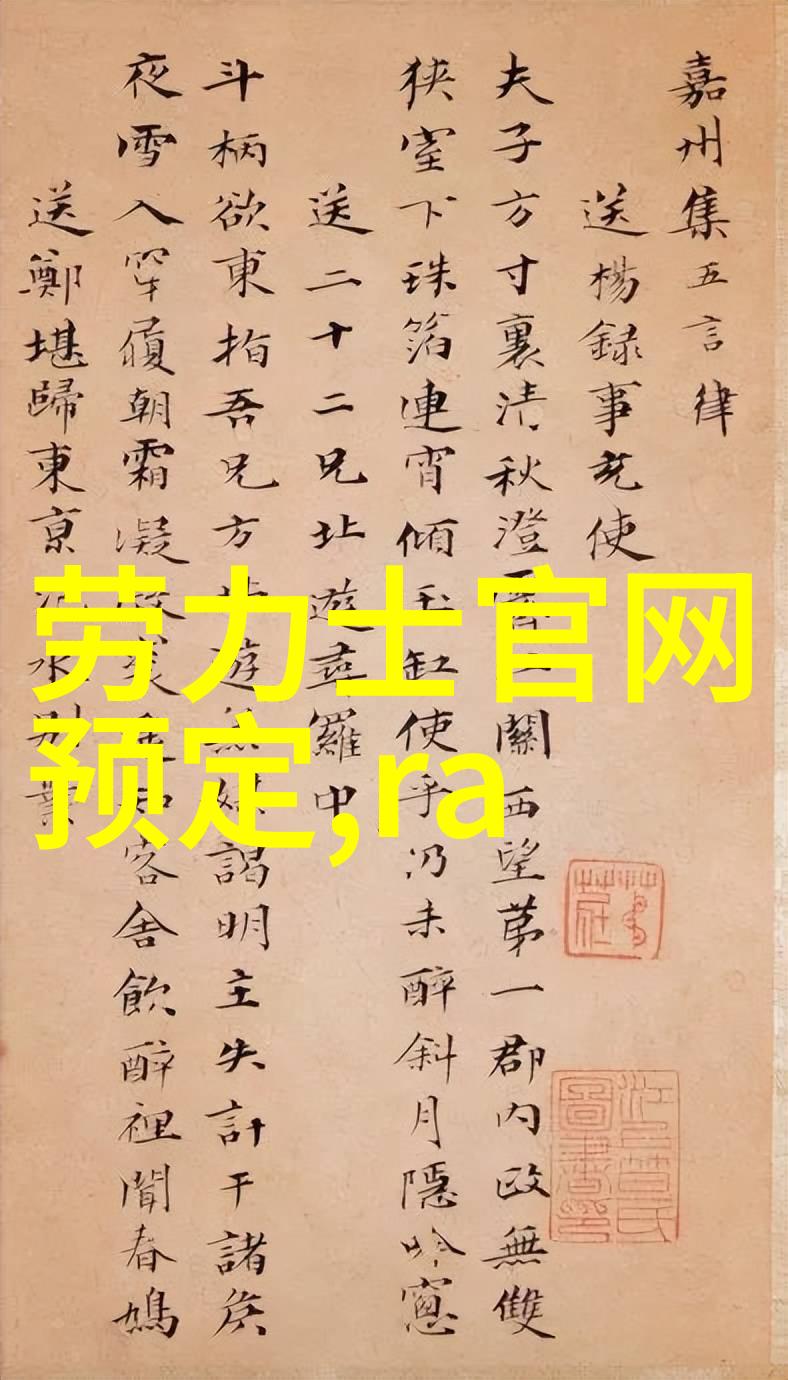 嘉州集五言律
送楊録事充使
夫子方寸裏清秋澄關西望第一郡内政無雙
狹室下珠箔連宵傾玉缸使乎仍未醉斜月隱吟窻
送二十二兄北遊尋羅中
斗柄欲東指吾兄方北遊無媒謁明主失計干諸侯
夜雪入穿履朝霜凝裘知客舍飲醉裡聞春鳩
送鄭堪歸東京水别業
劳力士官网
预定,ra